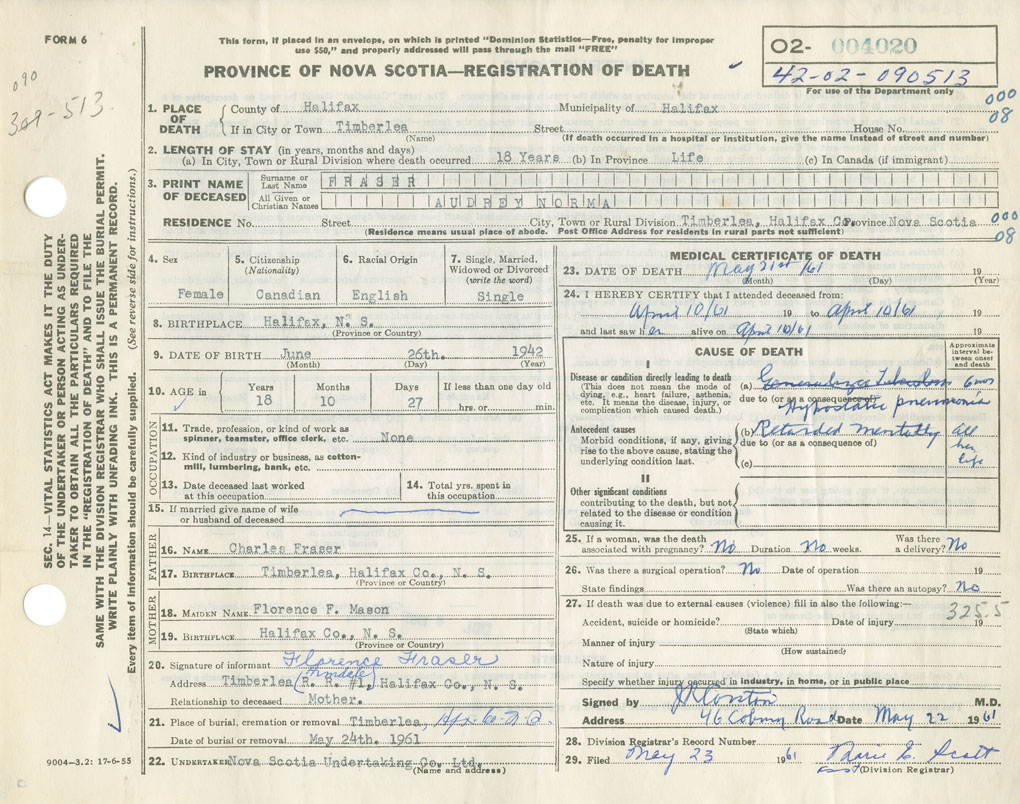 FORM 6
This form, if placed in an envelope, on which is printed "Dominion Statistics—Free, penalty for improper
use $50," and properly addressed will pass through the mail "FREE"
PROVINCE OF NOVA SCOTIA—REGISTRATION OF DEATH
O2- 004020
42-02-090513
For use of the Department only
090
513
000
08
SEC. 14—VITAL STATISTICS ACT MAKES IT THE DUTY
OF THE UNDERTAKER OR PERSON ACTING AS UNDER-
TAKER TO OBTAIN ALL THE PARTICULARS REQUIRED
IN THE "REGISTRATION OF DEATH" AND TO FILE THE
SAME WITH THE DIVISION REGISTRAR WHO SHALL ISSUE THE BURIAL PERMIT.
WRITE PLAINLY WITH UNFADING INK. THIS IS A PERMANENT RECORD.
Every item of information should be carefully supplied. (See reverse side for instructions.)
1. PLACE OF DEATH County of Halifax Municipality of Halifax
If in City or Town Timberlea Street House No.
(Name) (If death occurred in a hospital or institution, give the name instead of street and number)
2. LENGTH OF STAY (in years, months and days)
(a) In City, Town or Rural Division where death occurred 18 Years (b) In Province Life (c) In Canada (if immigrant)
3. PRINT NAME OF DECEASED Surname or Last Name FRASER
All Given or Christian Names AUDREY NORMA
RESIDENCE No. Street City, Town or Rural Division Timberlea, Halifax Co. Province Nova Scotia
(Residence means usual place of abode. Post Office Address for residents in rural parts not sufficient)
000
08
4. Sex 5. Citizenship (Nationality) 6. Racial Origin 7. Single, Married, Widowed or Divorced (write the word)
Female Canadian English Single
8. BIRTHPLACE Halifax, N. S.
(Province or Country)
9. DATE OF BIRTH June 26th. 1942
(Month) (Day) (Year)
10. AGE in Years Months Days If less than one day old
18 10 27 hrs. or min.
OCCUPATION
11. Trade, profession, or kind of work as
spinner, teamster, office clerk, etc. None
12. Kind of industry or business, as cotton-
mill, lumbering, bank, etc.
13. Date deceased last worked
at this occupation
14. Total yrs. spent in
this occupation
15. If married give name of wife
or husband of deceased
FATHER
16. NAME Charles Fraser
17. BIRTHPLACE Timberlea, Halifax Co., N. S.
(Province or Country)
MOTHER
18. MAIDEN NAME Florence F. Mason
19. BIRTHPLACE Halifax Co., N. S.
(Province or Country)
20. Signature of informant Florence Fraser
Address Timberlea (R. R. #1, Halifax Co., N. S.
Relationship to deceased Mother.
21. Place of burial, cremation or removal Timberlea, Hfx. Co. N. S.
Date of burial or removal May 24th. 1961
22. UNDERTAKER Nova Scotia Undertaking Co. Ltd.
(Name and address)
9004—3.2: 17-6-55
MEDICAL CERTIFICATE OF DEATH
23. DATE OF DEATH May 21st /61 19
(Month) (Day) (Year)
24. I HEREBY CERTIFY that I attended deceased from:
April 10/61 19 to April 10/61
and last saw her alive on April 10/61 19
CAUSE OF DEATH
Approximate interval between onset and death
I
Disease or condition directly leading to death
(This does not mean the mode of
dying, e.g., heart failure, asthenia,
etc. It means the disease, injury, or
complication which caused death.)
(a) 6 mos
due to (or as a consequence of)
Hypostatic pneumonia
Antecedent causes
Morbid conditions, if any, giving
rise to the above cause, stating the
underlying condition last.
(b) Retarded mentally All her life
due to (or as a consequence of)
(c)
II
Other significant conditions
contributing to the death, but not
related to the disease or condition
causing it.
25. If a woman, was the death
associated with pregnancy? No Duration No weeks. Was there a delivery? No
26. Was there a surgical operation? No Date of operation 19
State findings Was there an autopsy? No
27. If death was due to external causes (violence) fill in also the following:—
325.5
Accident, suicide or homicide? Date of injury 19
(State which)
Manner of injury
(How sustained)
Nature of injury
Specify whether injury occurred in industry, in home, or in public place
Signed by M.D.
Address 46 Coburg Road Date May 22 1961
28. Division Registrar's Record Number
29. Filed May 23 1961 Marie E. Scott
(Division Registrar)